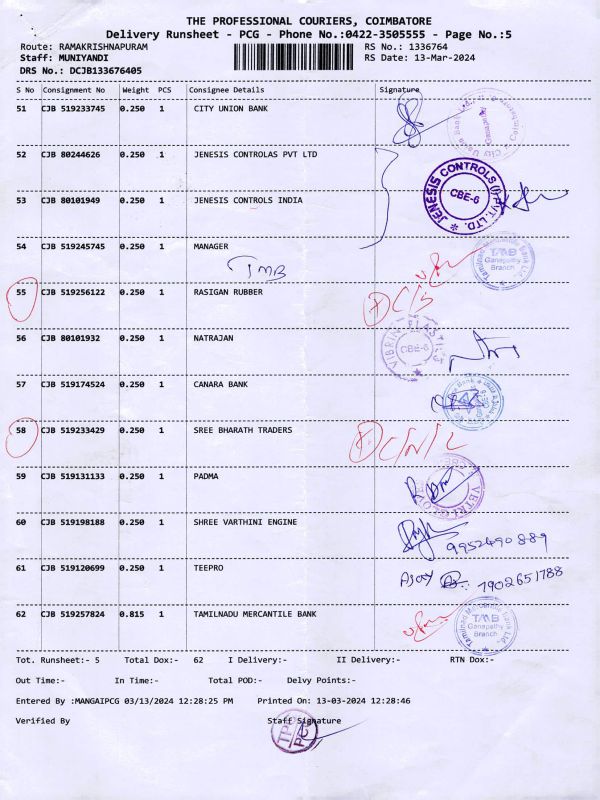 THE PROFESSIONAL COURIERS, COIMBATORE
Delivery Runsheet - PCG - Phone No.:0422-3505555 - Page No.:5
Route: RAMAKRISHNAPURAM RS No.: 1336764
Staff: MUNIYANDI RS Date: 13-Mar-2024
DRS No.: DCJB133676405
S No Consignment No Weight PCS Consignee Details Signature
51 CJB 519233745 0.250 1 CITY UNION BANK
City Union Bank Ltd. Ganapathy
52 CJB 80244626 0.250 1 JENESIS CONTROLAS PVT LTD
JENESIS CONTROLS (I) PVT. LTD. CBE-6
53 CJB 80101949 0.250 1 JENESIS CONTROLS INDIA
54 CJB 519245745 0.250 1 MANAGER
TMB
Tamilnad Mercantile Bank Ltd. TMB Ganapathy Branch
55 CJB 519256122 0.250 1 RASIGAN RUBBER
C/S
56 CJB 80101932 0.250 1 NATRAJAN
CBE-6
57 CJB 519174524 0.250 1 CANARA BANK
58 CJB 519233429 0.250 1 SREE BHARATH TRADERS
C/N/L
59 CJB 519131133 0.250 1 PADMA
60 CJB 519198188 0.250 1 SHREE VARTHINI ENGINE
9952490889
61 CJB 519120699 0.250 1 TEEPRO
AJAY 7902651788
62 CJB 519257824 0.815 1 TAMILNADU MERCANTILE BANK
Tamilnad Mercantile Bank Ltd. TMB Ganapathy Branch
Tot. Runsheet:- 5 Total Dox:- 62 I Delivery:- II Delivery:- RTN Dox:-
Out Time:- In Time:- Total POD:- Delvy Points:-
Entered By :MANGAIPCG 03/13/2024 12:28:25 PM Printed On: 13-03-2024 12:28:46
Verified By Staff Signature
TPC
PCG